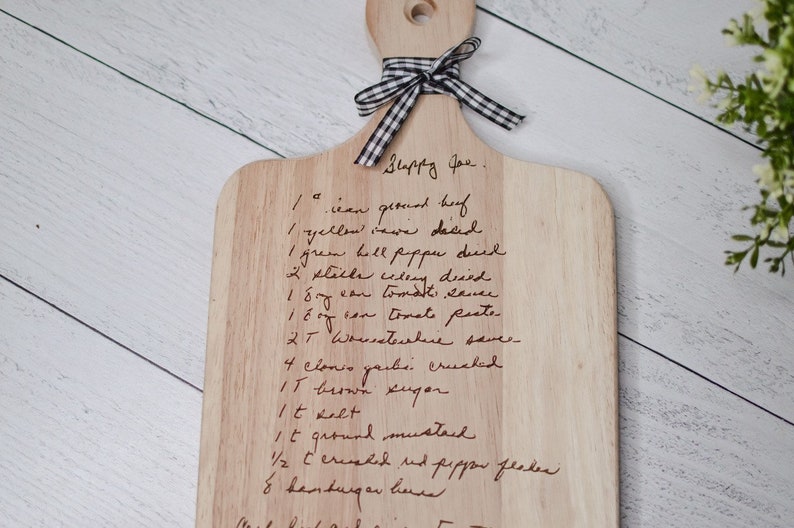 Sloppy Joe.
1 # lean ground beef
1 yellow onion diced
1 green bell pepper diced
2 stalks celery diced
1 8 oz can tomato sauce
1 6 oz can tomato paste
2 T Worcestershire sauce
4 cloves garlic crushed
1 T brown sugar
1 t salt
1 t ground mustard
1/2 t crushed red pepper flakes
8 hamburger buns